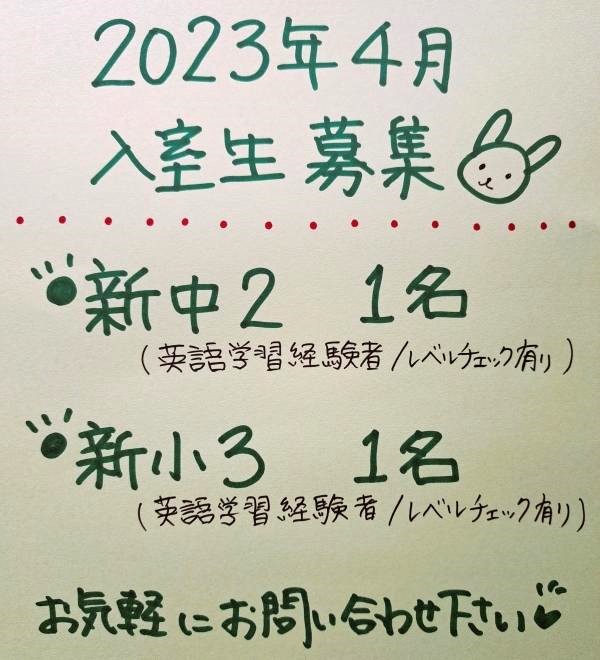 2023年4月
入室生 募集
新中2 1名
(英語学習経験者/レベルチェック有り)
新小3 1名
(英語学習経験者/レベルチェック有り)
お気軽にお問い合わせ下さい